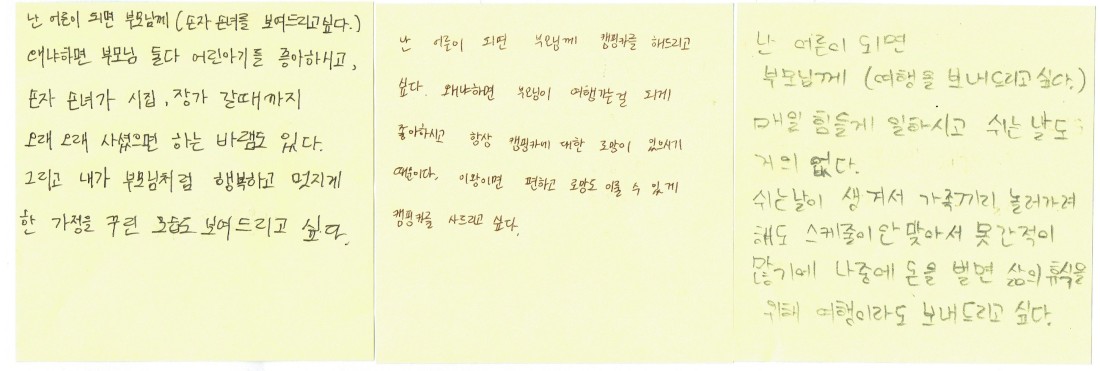 난 어른이 되면 부모님께 (손자 손녀를 보여드리고싶다.)
왜냐하면 부모님 둘다 어린아기를 좋아하시고,
손자 손녀가 시집, 장가 갈때까지
오래 오래 사셨으면 하는 바램도 있다.
그리고 내가 부모님처럼 행복하고 멋지게
한 가정을 꾸린 모습도 보여드리고 싶다.
난 어른이 되면 부모님께 캠핑카를 해드리고
싶다. 왜냐하면 부모님이 여행가는걸 되게
좋아하시고 항상 캠핑카에 대한 로망이 있으시기
때문이다. 이왕이면 편하고 로망도 이룰 수 있게
캠핑카를 사드리고 싶다.
난 어른이 되면
부모님께 (여행을 보내드리고싶다.)
매일 힘들게 일하시고 쉬는 날도
거의 없다.
쉬는날이 생겨서 가족끼리 놀러가려
해도 스케줄이 안 맞아서 못간적이
많기에 나중에 돈을 벌면 삶의 휴식을
위해 여행이라도 보내드리고 싶다.